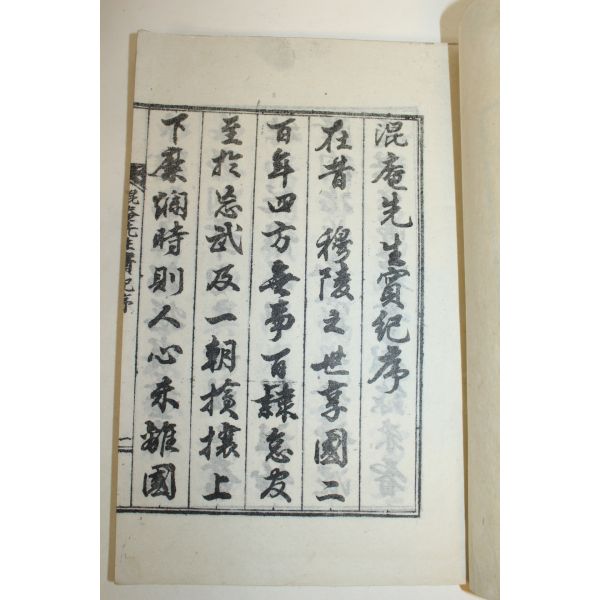 混庵先生實紀序
在昔 穆陵之世享國二
百年四方無事百隸怠官
至於忘武及一朝搶攘上
下糜爛時則人心未離國
混庵先生實紀序
一